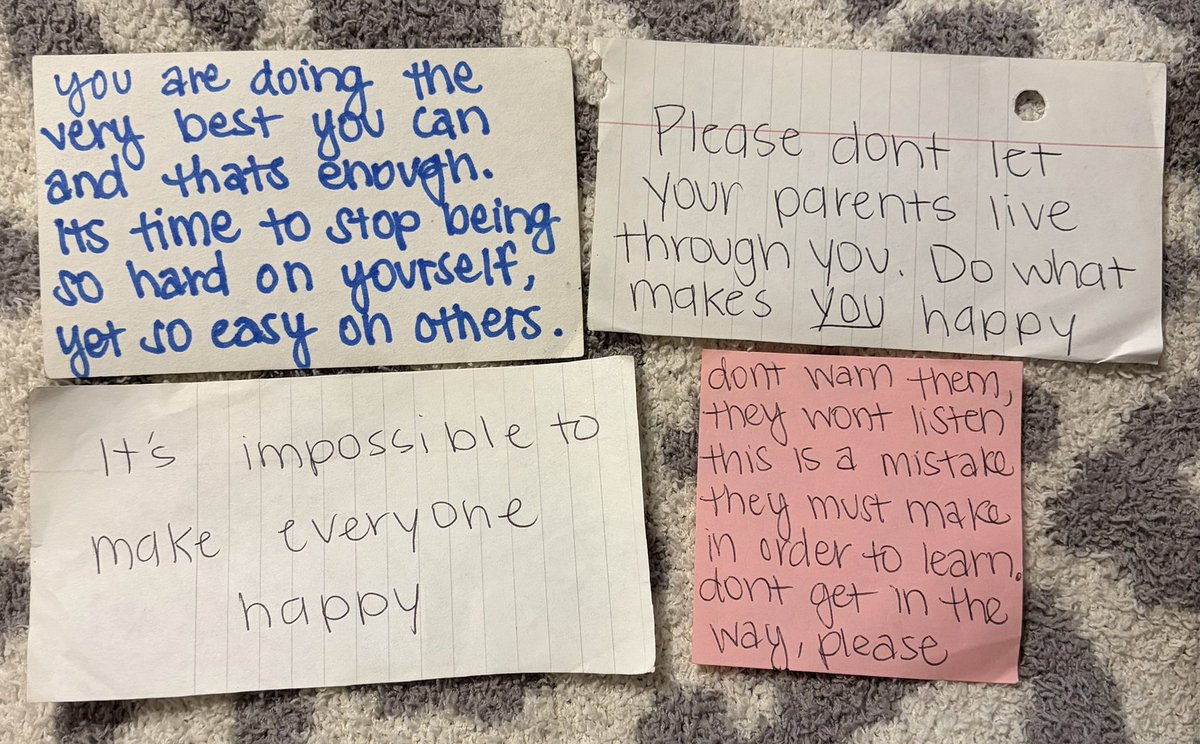 you are doing the
very best you can
and thats enough.
its time to stop being
so hard on yourself,
yet so easy on others.
Please dont let
your parents live
through you. Do what
makes you happy
It's impossible to
make everyone
happy
dont warn them,
they wont listen
this is a mistake
they must make
in order to learn.
dont get in the
way, please